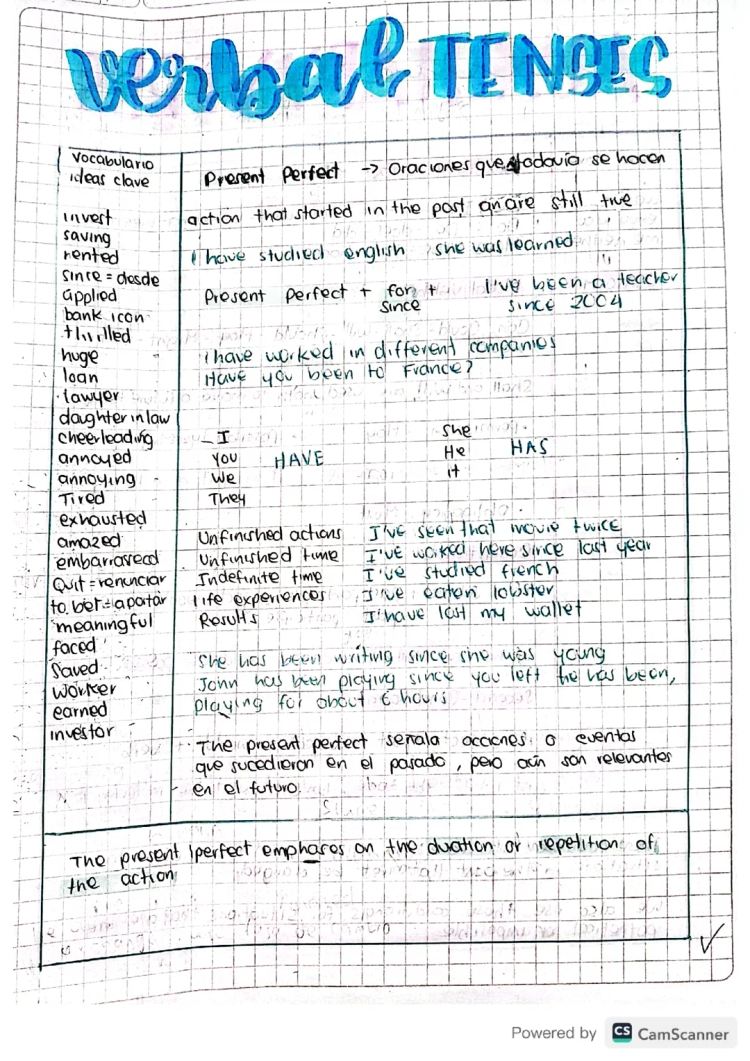 verbal TENSES
Vocabulario
ideas clave
invest
saving
rented
since = desde
applied
bank icon
thrilled
huge
loan
lawyer
daghter in law
cheerleading
annoyed
annoying
Tired
exhausted
amazed
embarrased
Quit = renunciar
to bet = apostar
meaningful
faced
Saved
Worker
earned
investor
Present Perfect -> Oraciones que todavía se hacen
action that started in the past an are still true
I have studied english she was learned
Present perfect + for + I've been a teacher
since since 2004
I have worked in different companies
Have you been to France?
I She
You HAVE He HAS
We it
They
Unfinished actions I've seen that movie twice
Unfinished time I've worked here since last year
Indefinite time I've studied french
life experiences I've eaten lobster
Results I'have lost my wallet
She has been writing since she was young
John has been playing since you left he has been,
playing for about 6 hours
The present perfect señala acciones o eventos
que sucedieron en el pasado, pero aún son relevantes
en el futuro.
The present perfect emphases on the duration or repetition of
the action
Powered by CS CamScanner